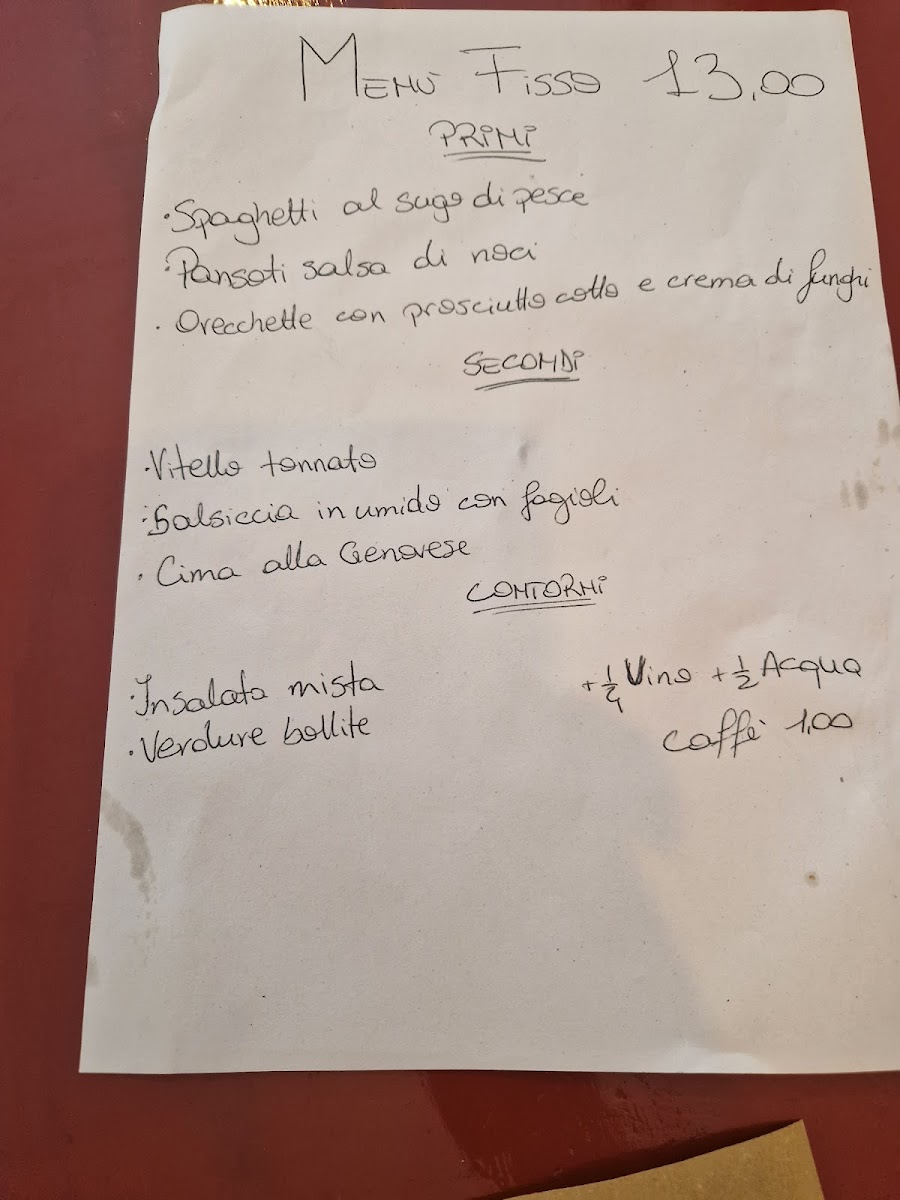 MENÙ FISSO 13,00
PRIMI
·Spaghetti al sugo di pesce
·Pansoti salsa di noci
·Orecchette con prosciutto cotto e crema di funghi
SECONDI
·Vitello tonnato
·Salsiccia in umido con fagioli
·Cima alla Genovese
CONTORNI
·Insalata mista
+ 1/4 Vino + 1/2 Acqua
·Verdure bollite
caffè 1,00